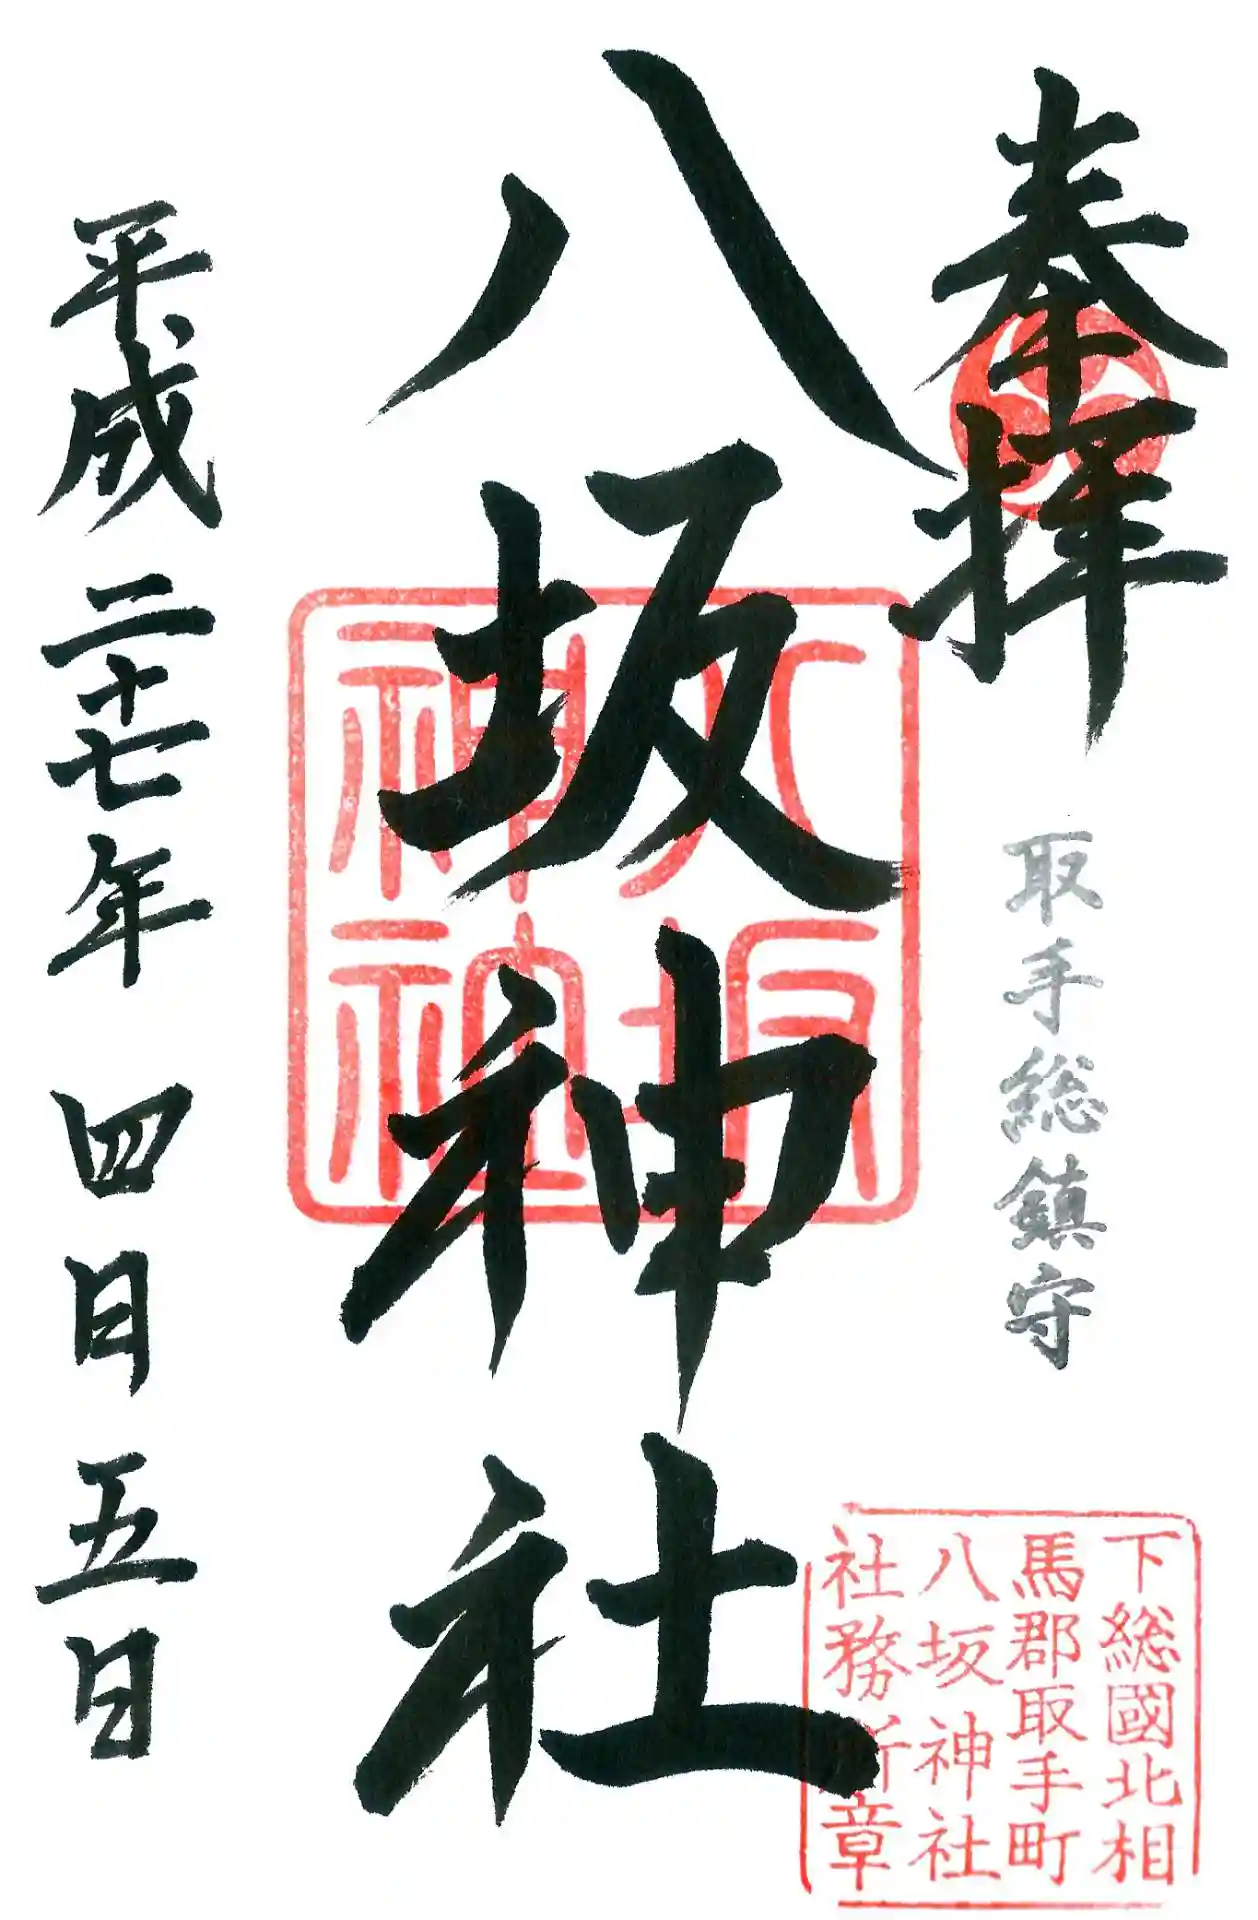 奉拝
取手総鎮守
八坂神社
平成二十七年四月五日
八坂
神社
下総國北相
馬郡取手町
八坂神社
社務所章